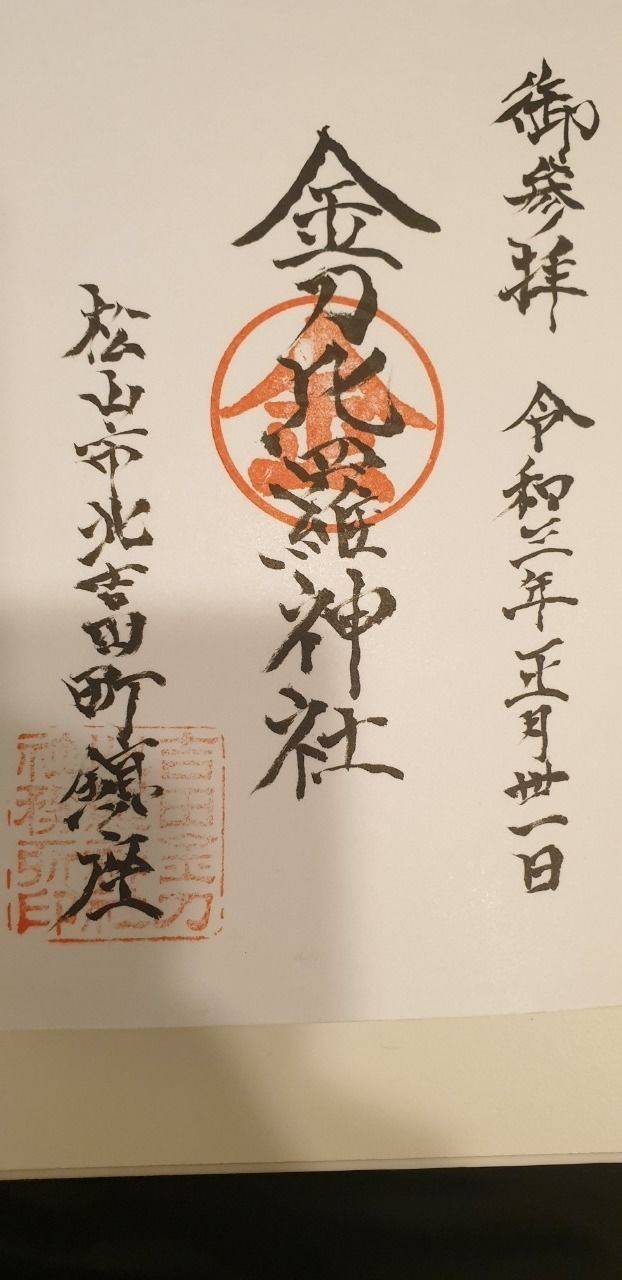 御参拝 令和三年正月丗一日
金刀比羅神社
金
松山市北吉田町鎮座
吉田金刀
社務所印